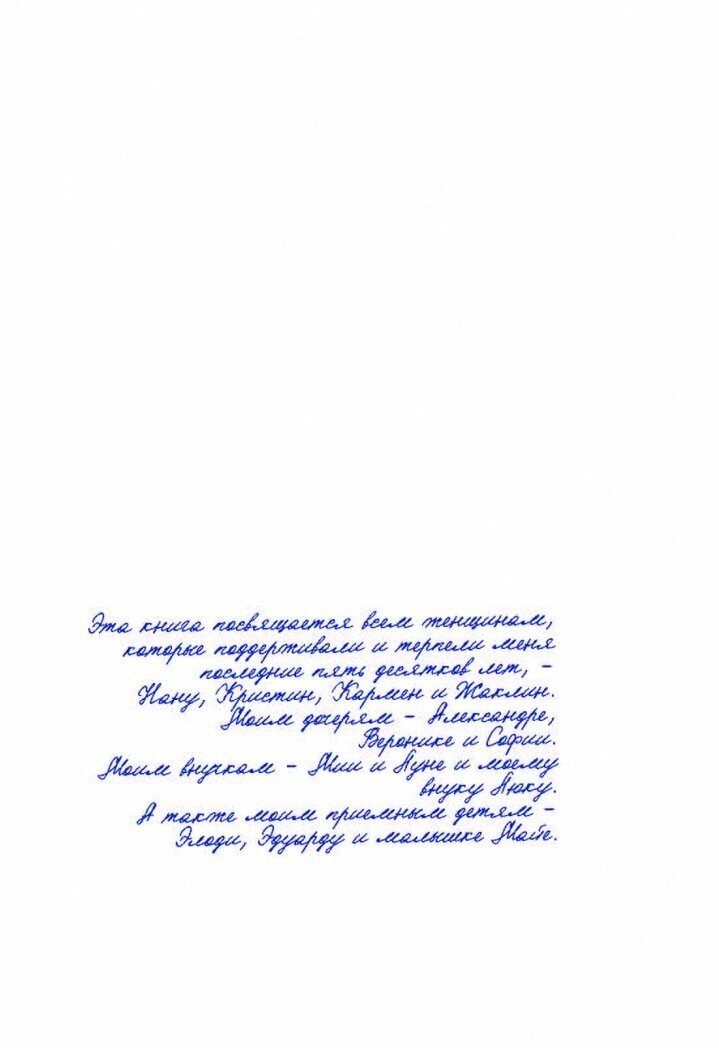 Эта книга посвящается всем женщинам,
которые поддерживали и терпели меня
последние пять десятков лет, –
Нану, Кристин, Кармен и Жаклин.
Моим дочерям – Александре,
Веронике и Софии.
Моим внучкам – Мии и Луне и моему
внуку Люку.
А также моим приемным детям –
Элоди, Эдуарду и малышке Майе.